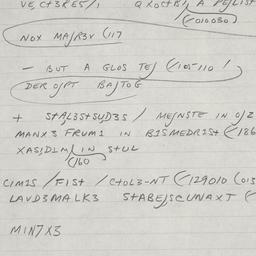 VE,C+3RE5/, QXOC+B/, A PEJLIST
(010030)
NOX MAJR3V (117
- BUT A GLOS TEJ (105110!
DER O/PT BAJTOG
+ S+AL3S+SUD3S / MEJNSTE IN O/2
MANX3 FRUM1 IN B1SMEDR1S+ (186
XAS/D1M IN S+UL
(160
C1M1S / F1S+ / C+OL3-NT (129010 (013
LAVD3MALK3 S+ABEJSCUNAXT (
M1N7X3